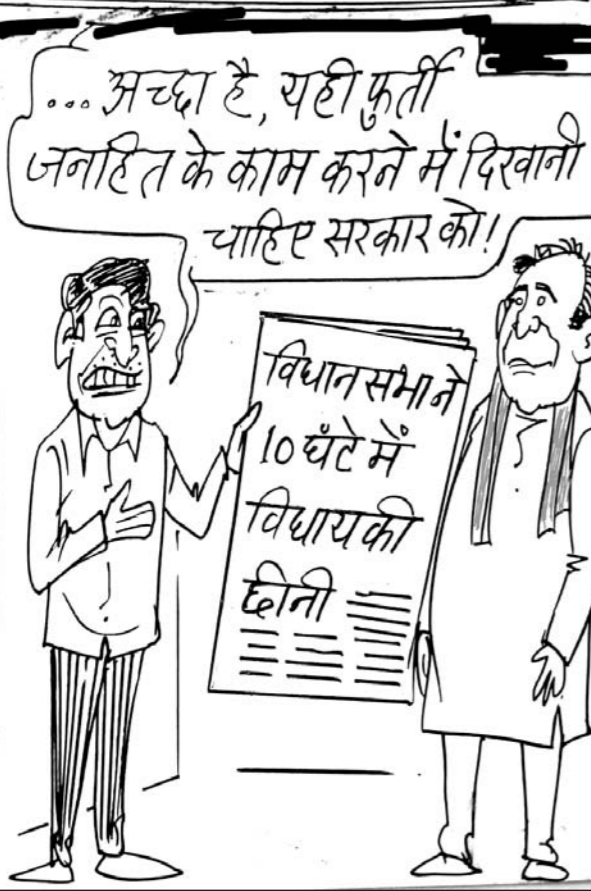 ... अच्छा है, यही फुर्ती
जनहित के काम करने में दिखानी
चाहिए सरकार को!
विधान सभा ने
10 घंटे में
विधायकी
छीनी